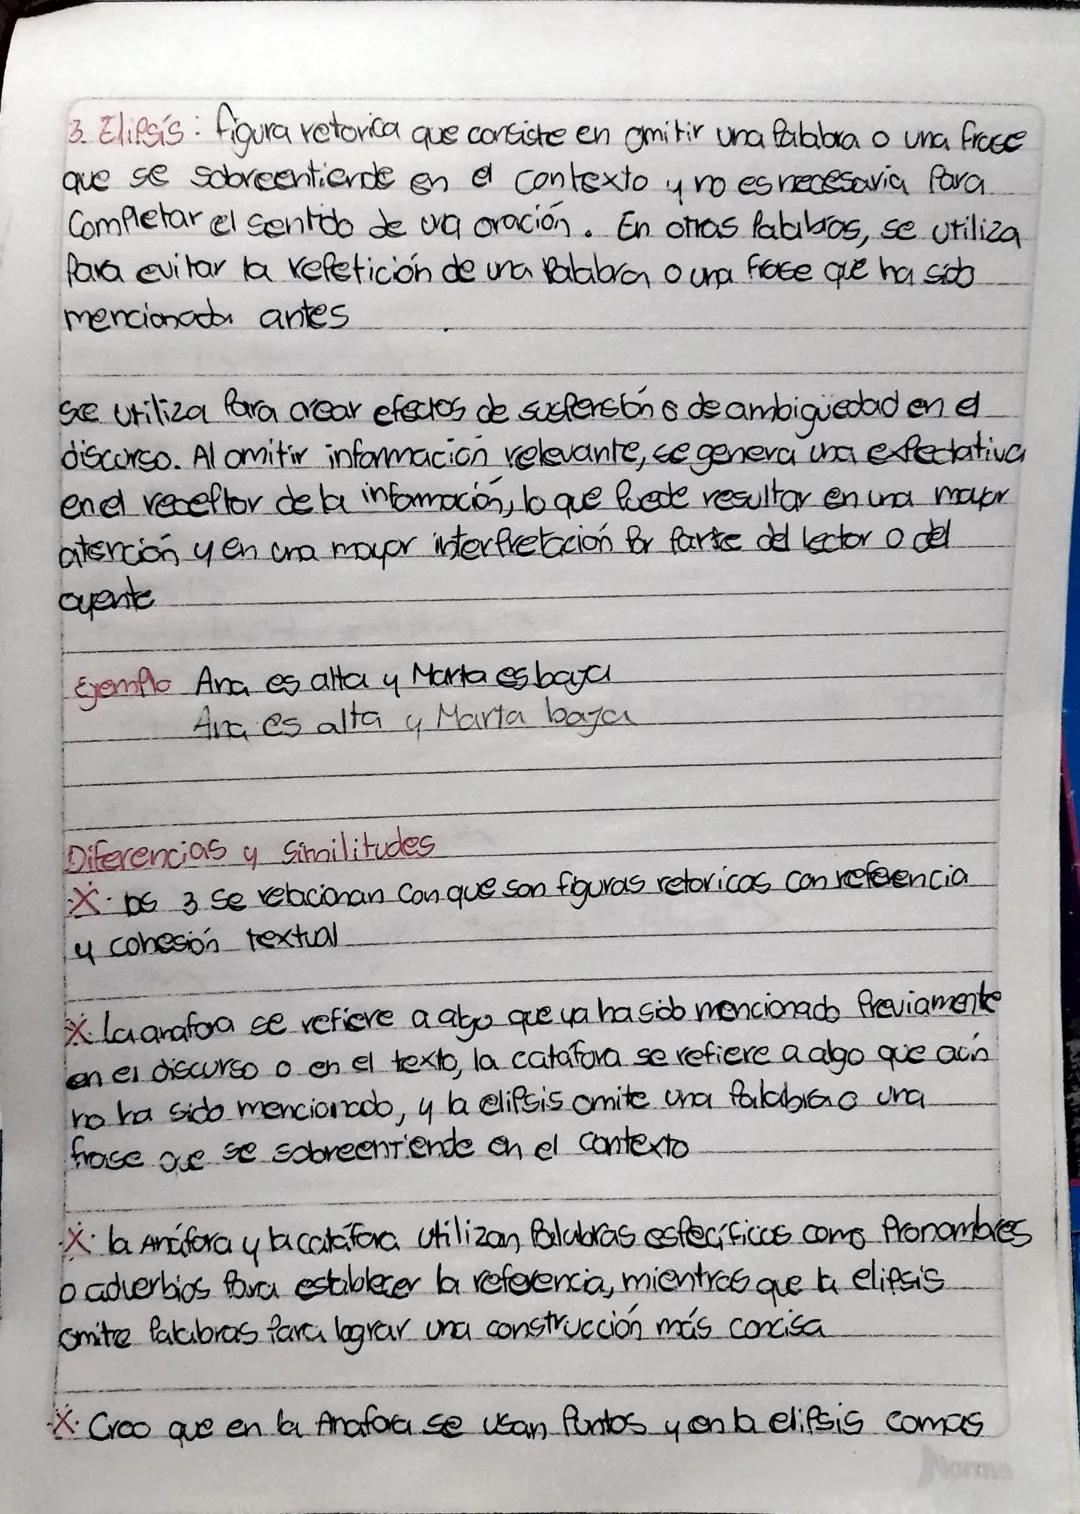 3. Elipsís: figura retorica que consiste en omitir una Palabra o una frase
que se sobreentiende en el contexto y no es necesaria Para
Completar el sentido de una oración. En otras Palabras, se utiliza
Para evitar la repetición de una Palabra o una frase que ha sido
mencionada antes
se utiliza Para crear efectos de suspensión o de ambigüedad en el
discurso. Al omitir información relevante, se genera una expectativa
en el receptor de la información, lo que Puede resultar en una mayor
atención y en una mayor interpretación Por Parte del lector o del
oyente
Ejemplo Ana es alta y Marta es baja
Ana es alta y Marta baja
Diferencias y Similitudes
X. los 3 se relacionan Con que son figuras retoricas con referencia
y cohesión textual
X. La anafora se refiere a algo que ya ha sido mencionado Previamente
en el discurso o en el texto, la catáfora se refiere a algo que aún
no ha sido mencionado, y la elipsis omite una Palabra o una
frase que se sobreentiende en el contexto
X. la Anáfora y la catáfora utilizan Palabras específicas como Pronombres
o adverbios Para establecer la referencia, mientras que la elipsis
omite Palabras Para lograr una construcción más concisa
X. Creo que en la Anafora se usan Puntos y en la elipsis comas
Norma